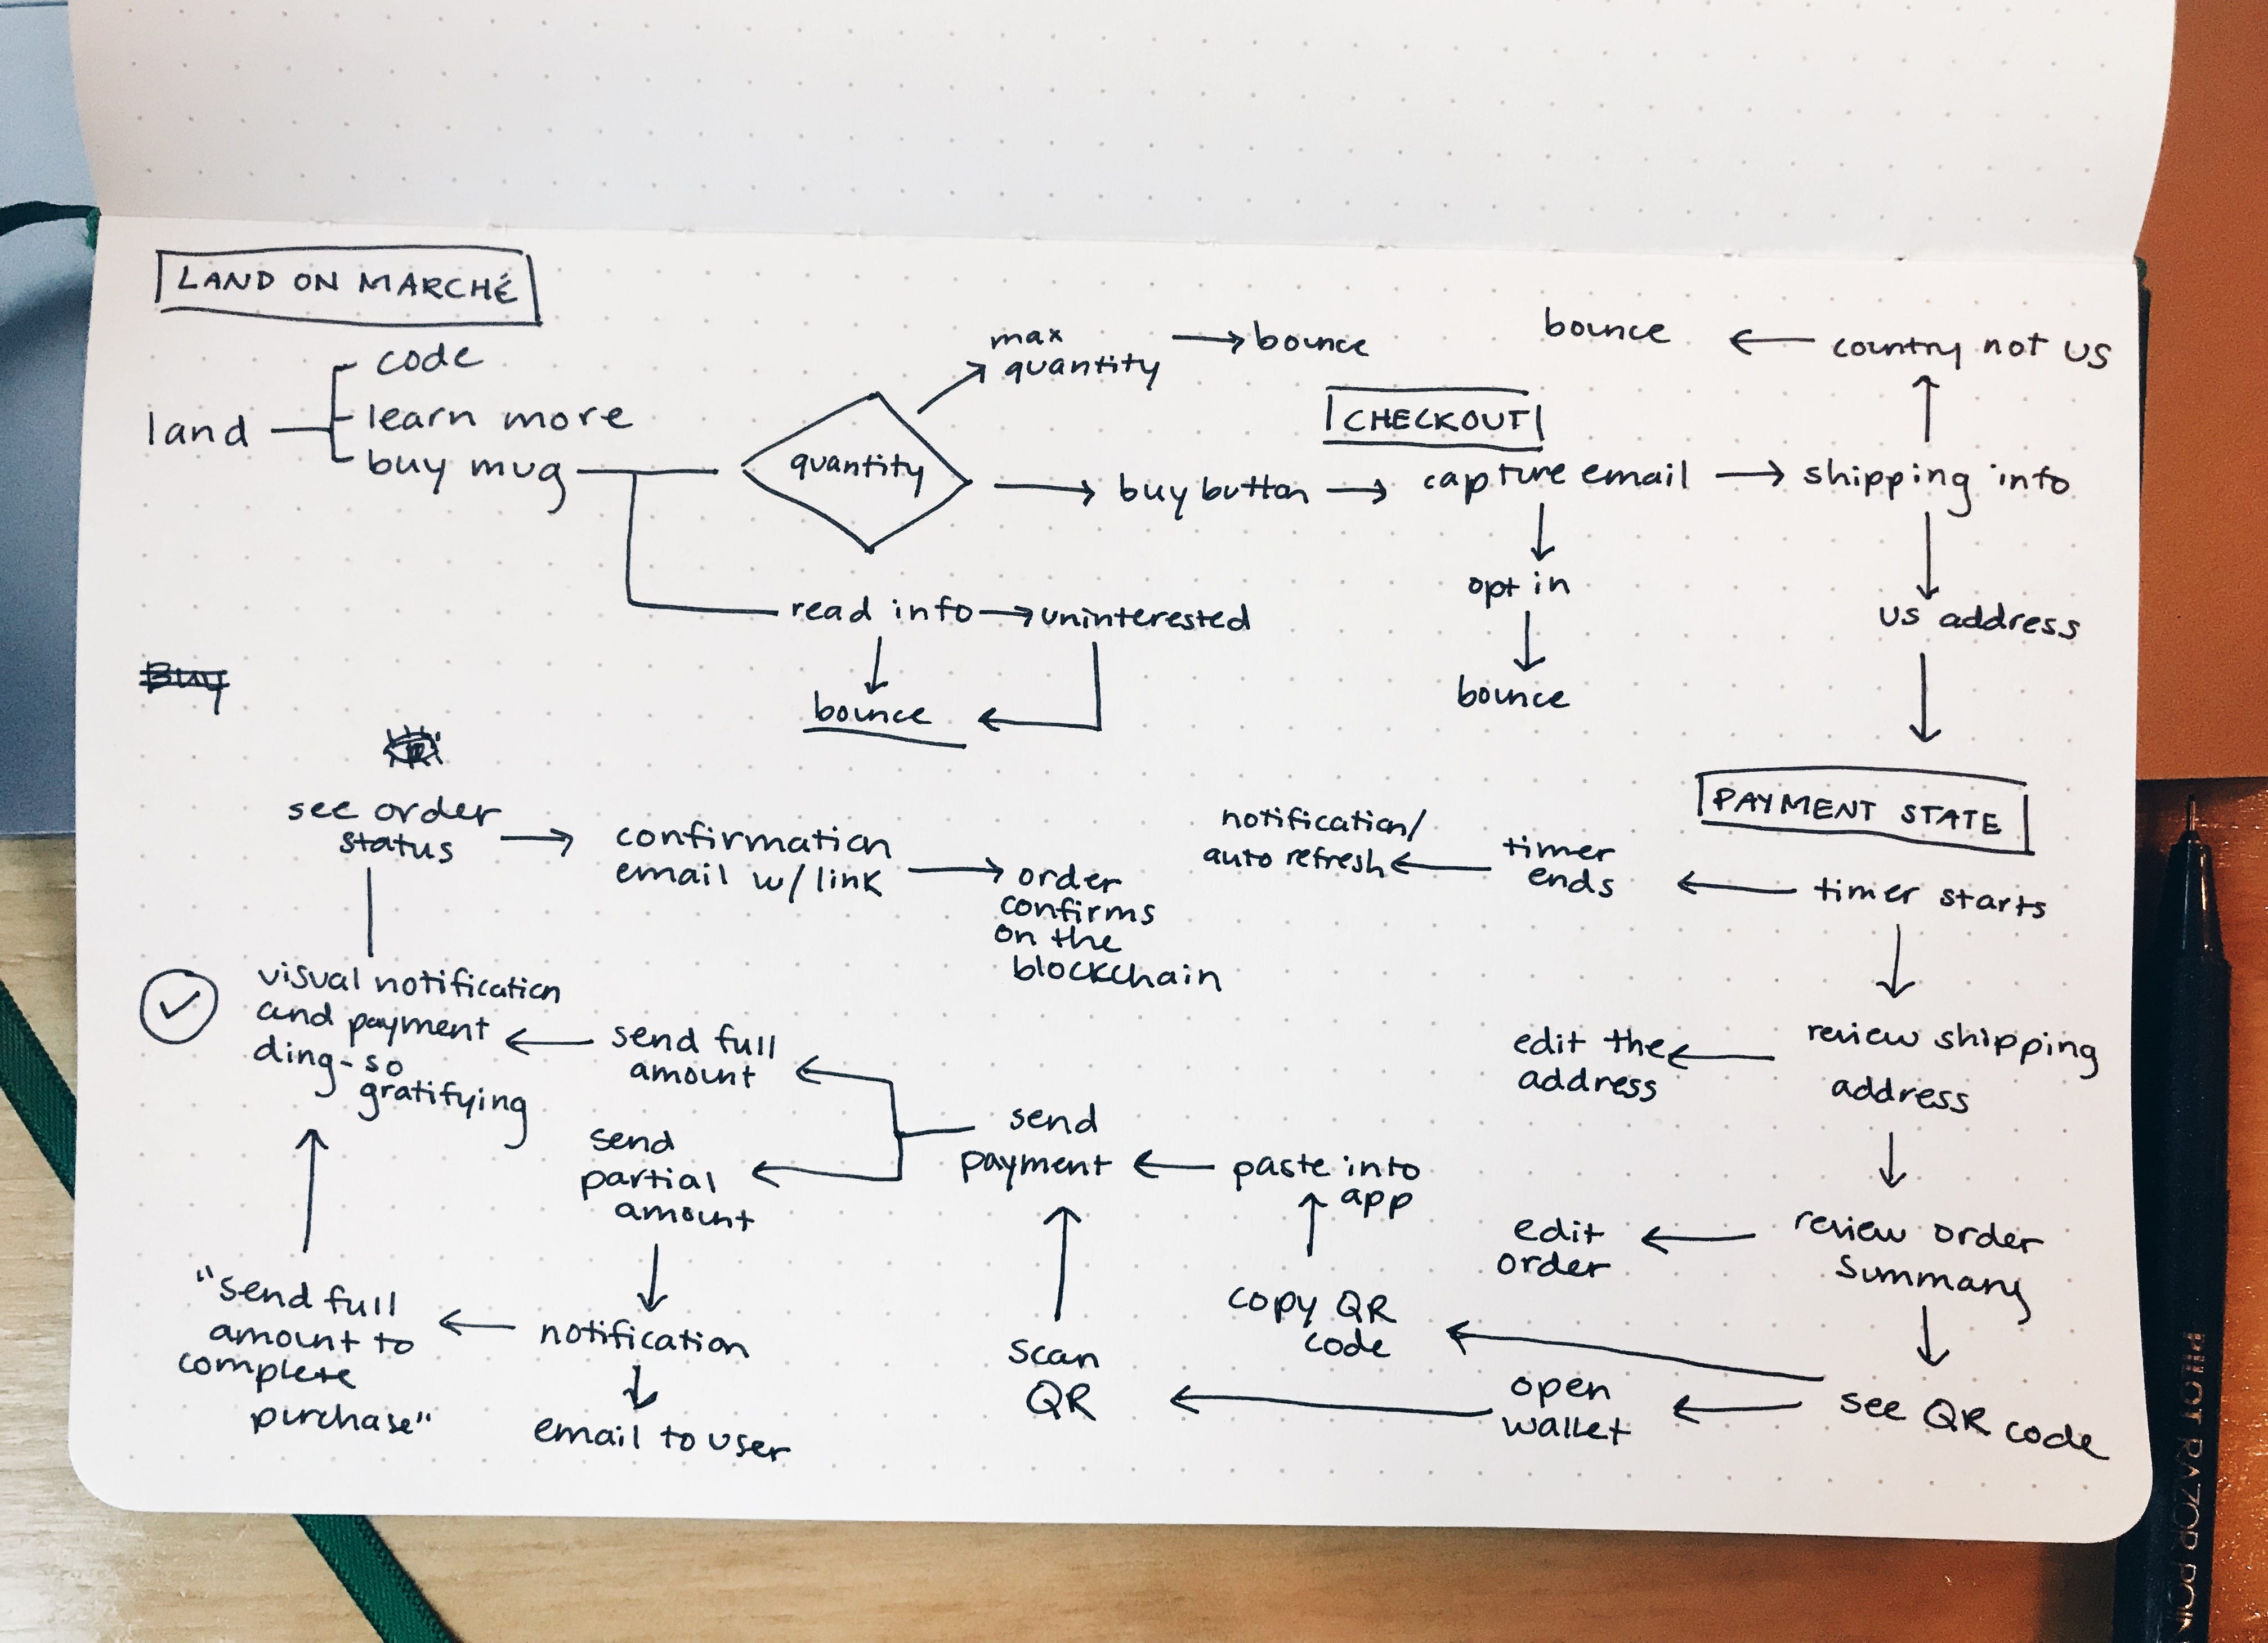 LAND ON MARCHÉ
code
land
learn more
buy mug
quantity
max
quantity
bounce
bounce
country not US
CHECKOUT
buy button
capture email
shipping info
opt in
bounce
us address
read info
uninterested
bounce
Buy
see order
status
confirmation
email w/ link
order
confirms
on the
blockchain
notification/
auto refresh
timer
ends
PAYMENT STATE
timer starts
visual notification
and payment
ding - so
gratifying
send full
amount
send
partial
amount
send
payment
paste into
app
edit the
address
review shipping
address
edit
order
review order
summary
"send full
amount to
complete
purchase"
notification
email to user
scan
QR
copy QR
code
open
wallet
see QR code
PILOT RAZOR POIN